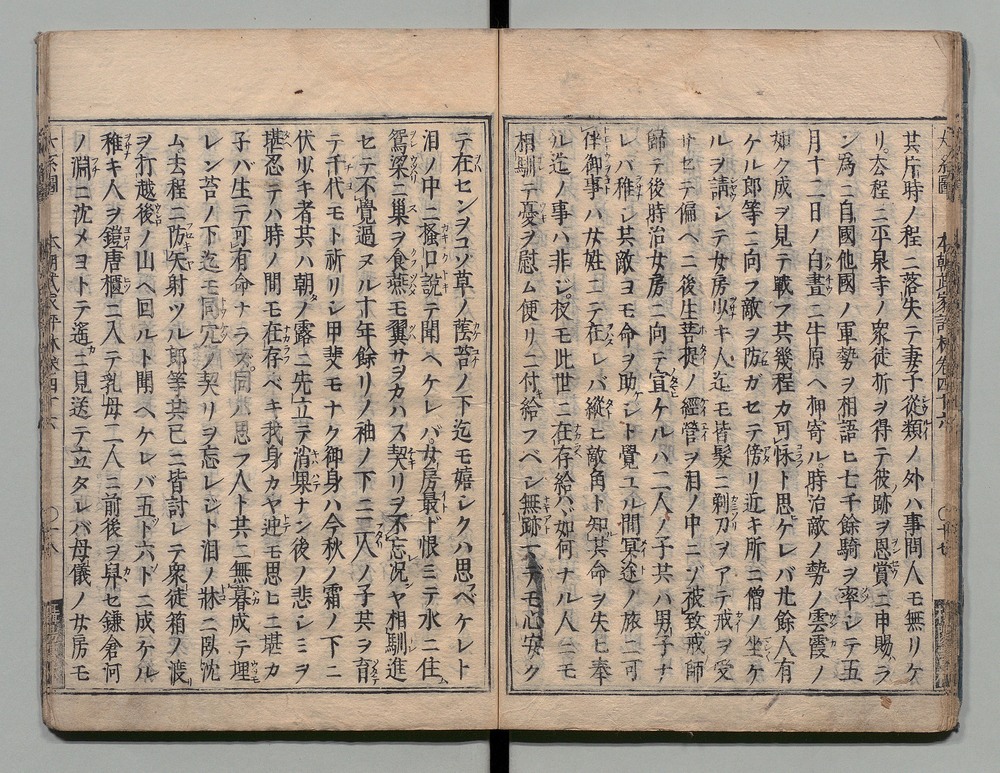 其片時ノ程ニ落失テ妻子從類ノ外ハ事問人モ無リケ
リ去程ニ平泉寺ノ衆徒折ヲ得テ彼跡ヲ恩賞ニ申賜ハラ
ン為ニ自國他國ノ軍勢ヲ相語ヒ七千餘騎ヲ率シテ五
月十二日ノ白晝ニ牛原ヘ押寄ル時治敵ノ勢ノ雲霞ノ
如ク成ヲ見テ戰フ共幾程カ可怺ト思ケレバ廿餘人有
ケル郎等ニ向フ敵ヲ防ガセテ傍リ近キ所ニ僧ノ坐ケ
ルヲ請シテ女房少キ人迄モ皆髮ニ剃刀ヲアテ戒ヲ受
サセテ偏ヘニ後生菩提ノ經營ヲ泪ノ中ニゾ被致戒師
歸テ後時治女房ニ向テ宣ケルハ二人ノ子共ハ男子ナ
レバ稚シ共敵ヨモ命ヲ助ケジト覺ユル間冥途ノ旅ニ可
伴御事ハ女姓ニテ在レバ縱ヒ敵角ト知其命ヲ失ヒ奉
ル迄ノ事ハ非ジ扨モ此世ニ在存給ハバ如何ナル人ニモ
相馴テ憂ヲ慰ム便リニ付給フベシ無跡マデモ心安ク
テ在センヲコソ草ノ蔭苔ノ下迄モ嬉シクハ思ベケレト
泪ノ中ニ掻口説テ聞ヘケレバ女房最ド恨ミテ水ニ住
鴛梁ニ巢ヲ食燕モ翼サヲカハス契リヲ不忘况ヤ相馴進
セテ不覺過ヌル十年餘リノ袖ノ下ニ二人ノ子共ヲ育
テ千代モト祈リシ甲斐モナク御身ハ今秋ノ霜ノ下ニ
伏リキ者共ハ朝ノ露ニ先立テ消果ナン後ノ悲シミヲ
堪忍テハ時ノ間モ在存ベキ我身カヤ迚モ思ヒニ堪カ
子バ生テ可有命ナラズ同ハ思フ人ト共ニ無暮成テ埋
レン苔ノ下迄モ同穴ノ契リヲ忘レジト泪ノ牀ニ臥沈
ム去程ニ防矢射ツル郎等共已ニ皆討レテ衆徒箱ノ渡
ヲ打越後ノ山ヘ回ルト聞ヘケレバ五ト六トニ成ケル
稚キ人ヲ鎧唐櫃ニ入テ乳母二人ニ前後ヲ舁セ鎌倉河
ノ淵ニ沈メヨトテ遙ニ見送テ立タレバ母儀ノ女房モ